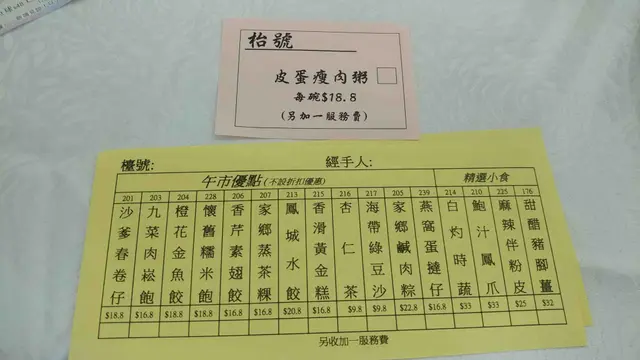 枱號
皮蛋瘦肉粥
每碗$18.8
(另加一服務費)
檯號: 經手人:
午市優點(不設折扣優惠) 精選小食
201 203 204 228 206 207 213 215 216 217 205 239 214 210 225 176
沙爹春卷仔
九菜肉崧飽
橙花金魚餃
懷舊糯米飽
香芹素翅餃
家鄉蒸茶粿
鳳城水餃
香滑黃金糕
杏仁茶
海帶綠豆沙
家鄉鹹肉粽
燕窩蛋撻仔
白灼時蔬
鮑汁鳳爪
麻辣伴粉皮
甜醋豬腳薑
$18.8 $16.8 $18.8 $18.8 $16.8 $16.8 $20.8 $16.8 $9.8 $9.8 $22.8 $16.8 $33 $33 $25 $32
另收加一服務費